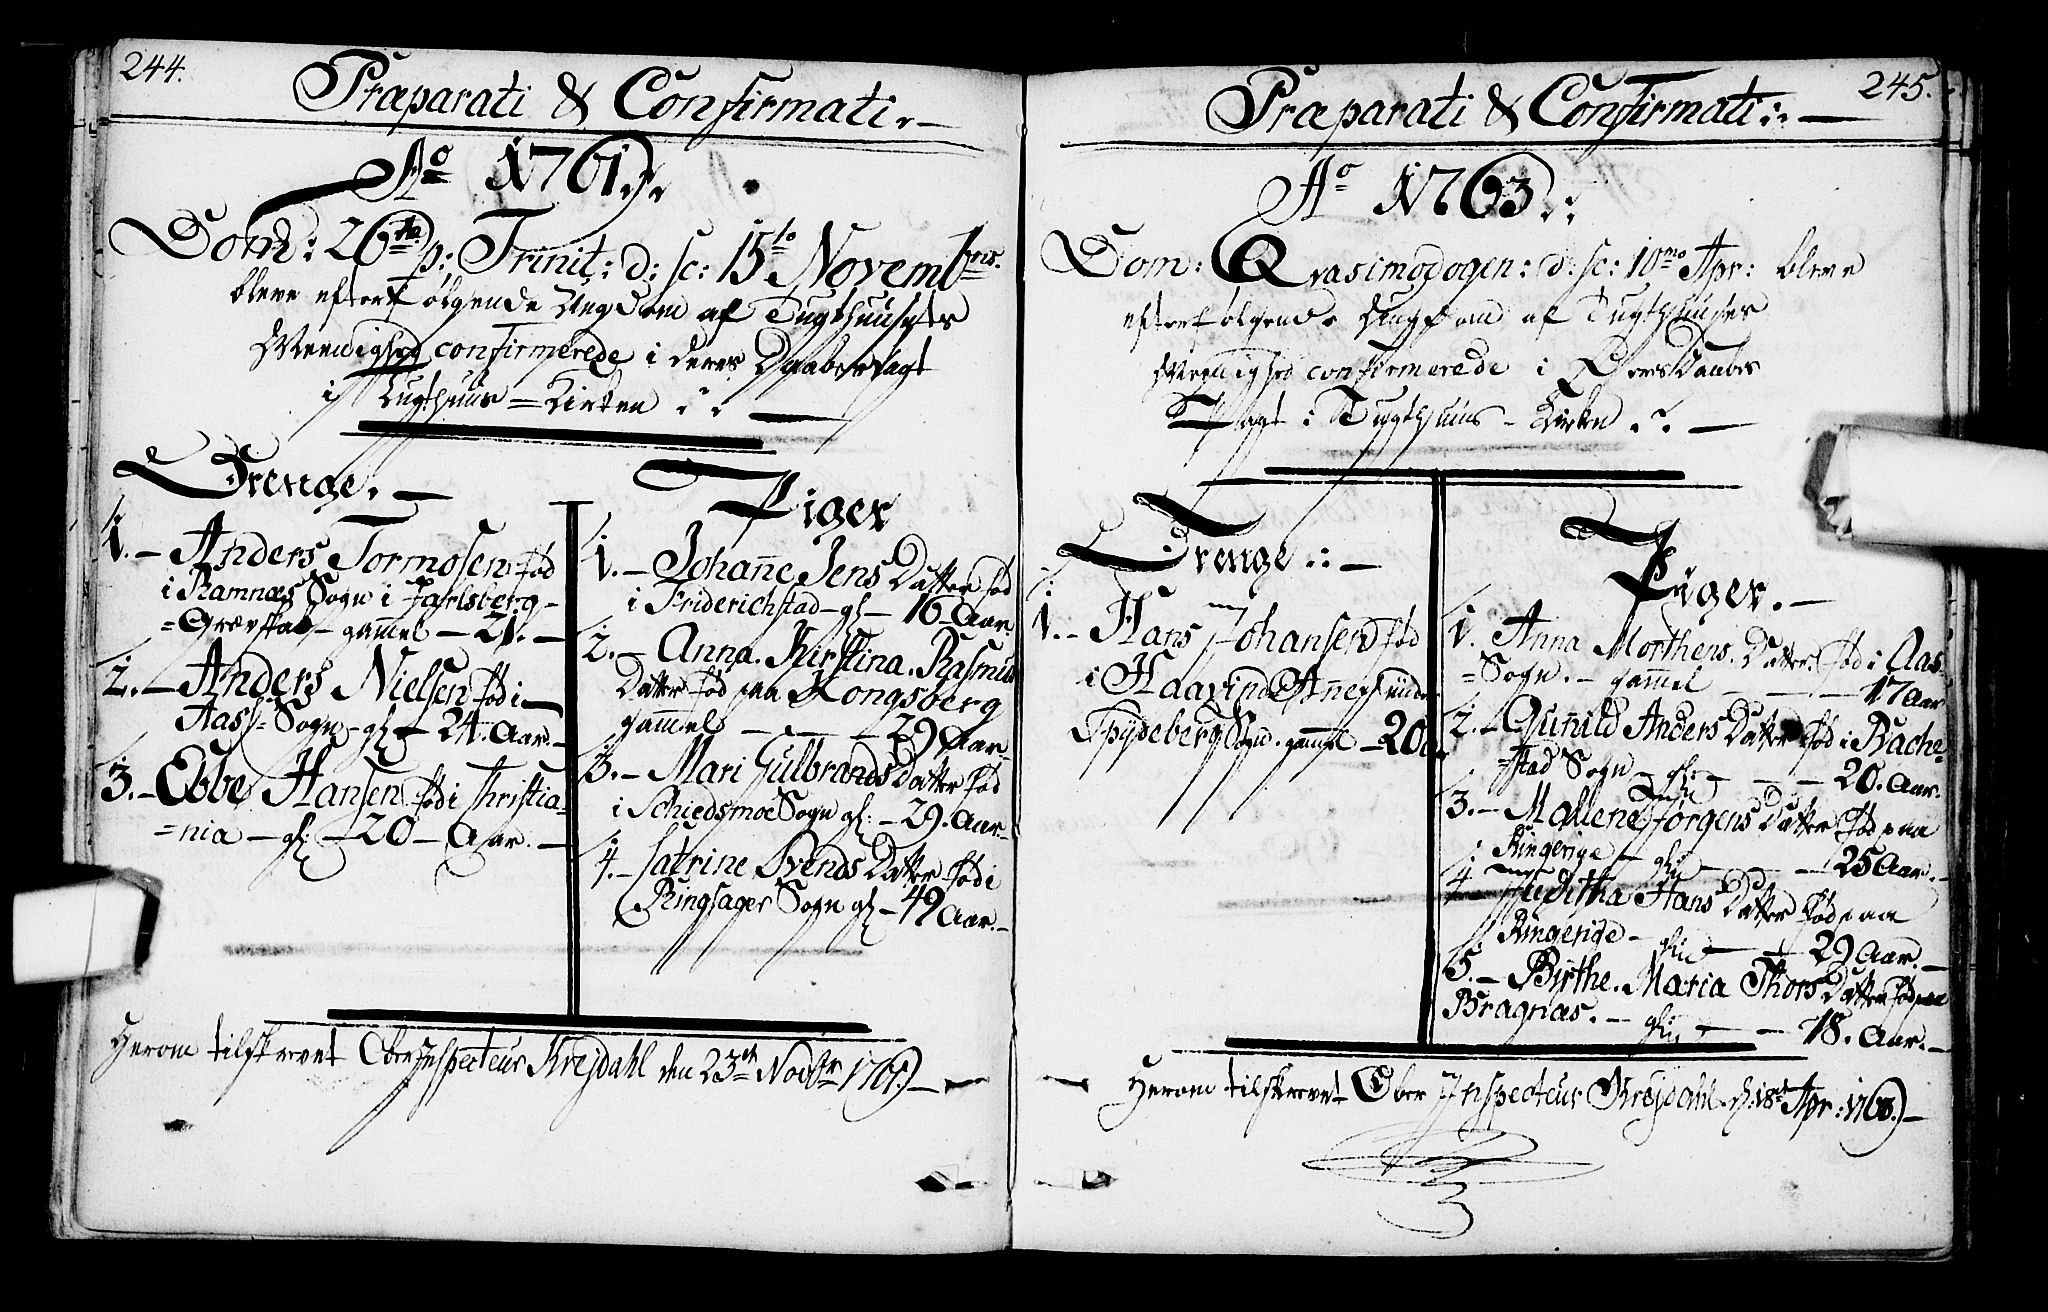 244.
Præparati & Confirmati.
Aº 1761.
Dom: 26ta p: Trinit: d: sc: 15to Novembris.
bleve efterfølgende Ungdom af Tugthuusets
Meenighed confirmerede i deres Daabes Pagt
i Tugthuus=Kirken
Drenge.
1. Anders Tormosen fød
i Ramnæs Sogn i Jarlsberg
=Grævskab gammel 21.
2. Anders Nielsen fød i
Aass= Sogn gl 24. Aar.
3. Ebbe Hansen fød i Christia=
=nia gl 20 Aar.
Piger
1. Johanne Jens Datter fød
i Friderichstad gl 16 Aar.
2. Anna Kirstina Rasmus
Datter fød paa Kongsberg
gammel 29 Aar
3. Mari Gulbrands Datter fød
i Schiedsmoe Sogn gl: 29. Aar.
4. Catrine Svends Datter fød i
Ringsager Sogn gl 49 Aar.
Herom tilskrevet Ober Inspecteur Krejdahl den 23de Novbr 1761.
245.
Præparati & Confirmati:
Aº 1763.
Dom: Qvasimodogen: d: sc: 10mo Apr: bleve
efterfølgende Ungdom af Tugthuuses
Meenighed confirmerede i Deres Daabes
Pagt i Tugthuus-Kirken.
Drenge
1. Hans Johansen fød
i Haavind Annex
Spydeberg Sogn. gammel 20
Piger.
1. Anna Morthens Datter fød i Aas
=Sogn. gammel 17 Aar
2. Gunild Anders Datter fød i Rache=
=stad Sogn gl: 20. Aar.
3. Mallene Jørgens Datter fød paa
Ringerige gl: 25 Aar.
4 Juditha Hans Datter fød paa
Ringerige gl: 29 Aar.
5. Birthe Maria Thors Datter fød paa
Bragnæs. gl: 18. Aar.
Herom tilskrevet Ober Inspecteur Krejdahl d: 18de Apr: 1763.